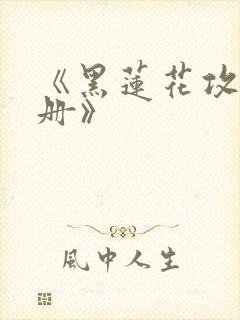 《黑蓮花攻
册》
風中人生